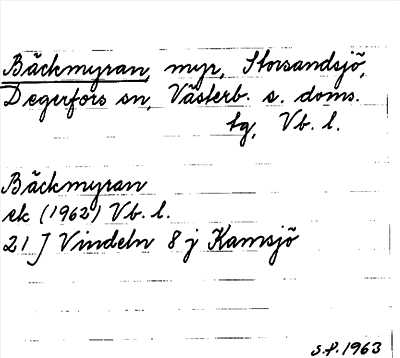 Bäckmyran, myr, Storsandsjö,
Degerfors sn, Västerb. s. doms.
tg, Vb. l.
Bäckmyran
ek (1962) Vb. l.
21 J Vindeln 8 j Kamsjö
S.P. 1963